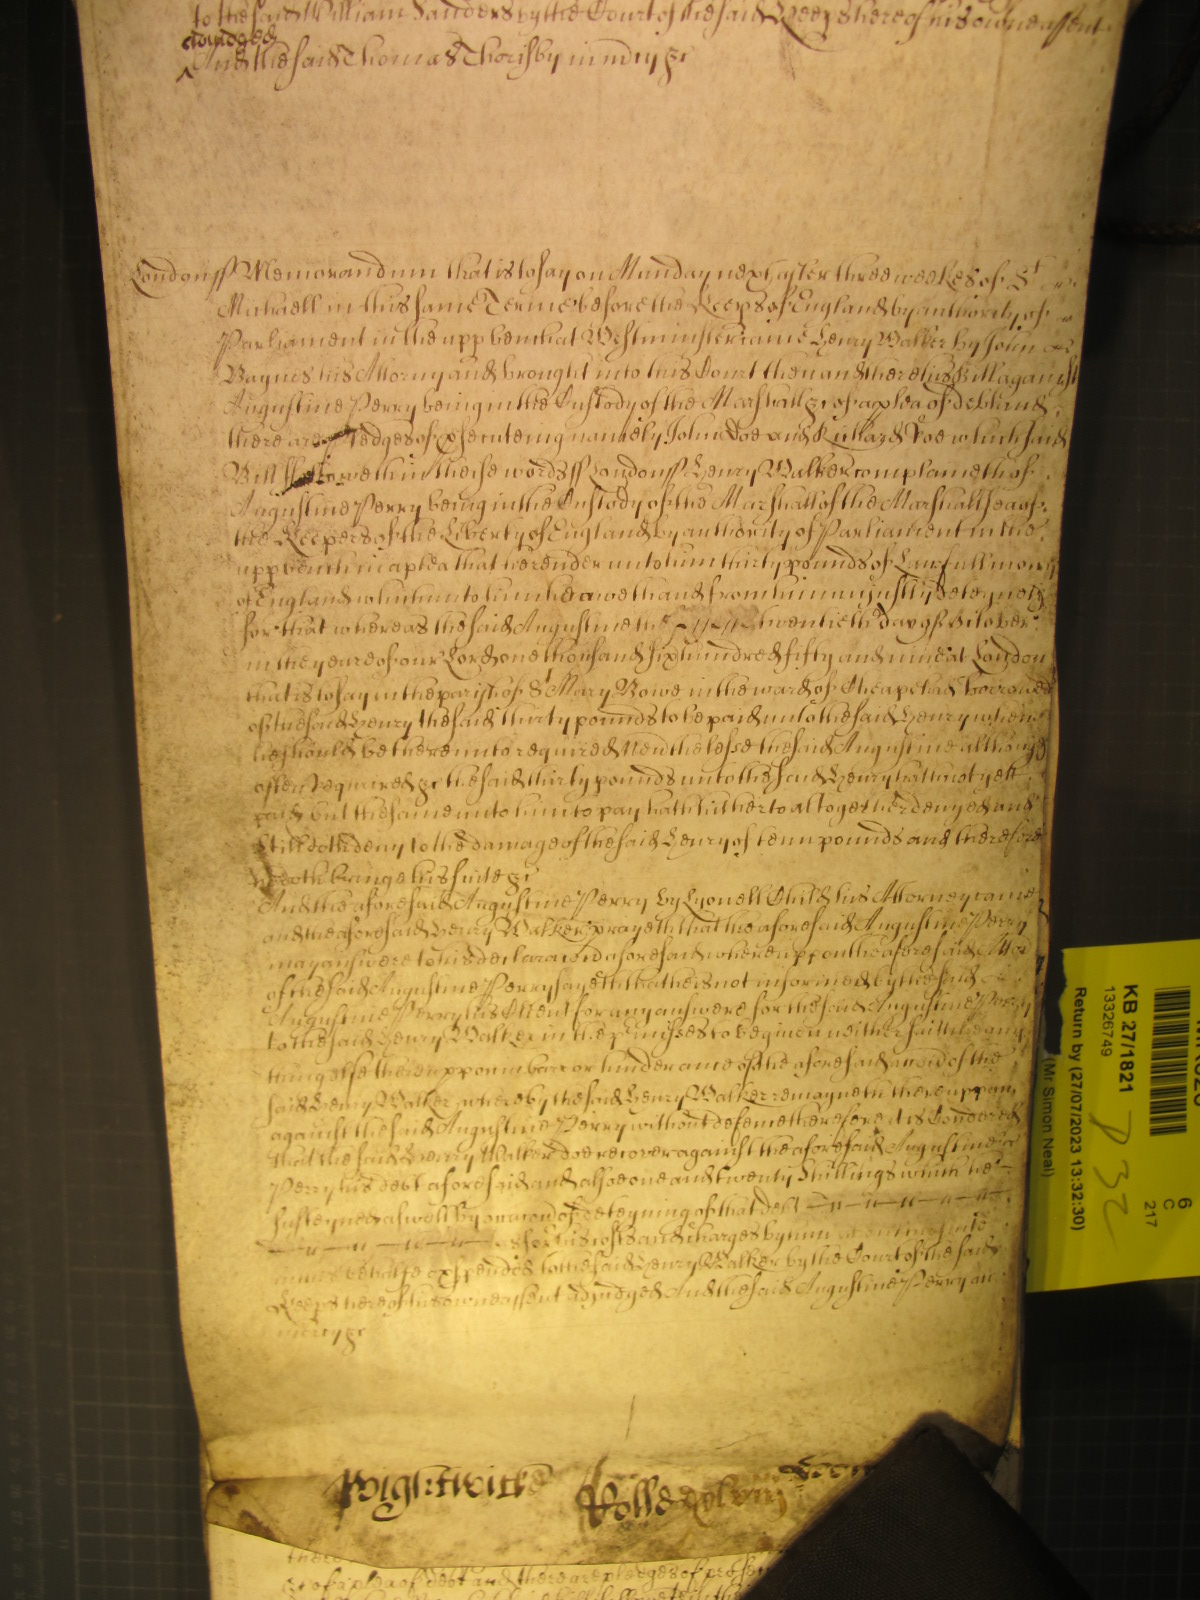 to the said William Sanders by the Court of the said Keeps here of his owne assent
adjudged
And the said Thomas Thorisby in mcy &c
London ss Memorandum that is to say on Munday next after three weekes of St
Michaell in this same Terme before the Keeps of England by authority of
Parliament in the upp bench at Westminster came Henry Walker by John
Baynes his Attorny and brought into this Court then and there his Bill against
Augustine Perry being in the Custody of the Marshall &c of a plea of debt and
there are pledges of psecuteing namely John Doe and Richard Roe which said
Bill followeth in theise words ss London ss Henry Walker complaineth of
Augustine Perry being in the Custody of the Marshall of the Marshallsea of
the Keepers of the Liberty of England by authority of Parliament in the
upp bench in a plea that he render unto him thirty pounds of Lawfull mony
of England which unto him he oweth and from him unjustly deteyneth
for that whereas the said Augustine the twentieth day of October
in the yeare of our Lord one thousand six hundred fifty and nine at London
that is to say in the parish of St Mary Bowe in the ward of Cheape had borrowed
of the said Henry the said thirty pounds to be paid unto the said Henry when
he should be thereunto required Neverthelesse the said Augustine although
often required &c the said thirty pounds unto the said Henry hath not yett
paid but the same unto him to pay hath hitherto altogether denyed and
still doth deny to the damage of the said Henry of tenn pounds and therefore
he doth bringe his suite &c
And the aforesaid Augustine Perry by Lyonell Child his Attorney came
and the aforesaid Henry Walker prayeth that the aforesaid Augustine Perry
may answere to his declaracon aforesaid whereuppon the aforesaid Attor
of the said Augustine Perry sayeth that he is not informed by the said
Augustine Perry his Client for any answere for the said Augustine Perry
to the said Henry Walker in the pmisses to be given neither saith he any
thing else thereuppon in barr or hinderance of the aforesaid accon of the
said Henry Walker whereby the said Henry Walker remayneth thereuppon
against the said Augustine Perry without defence therefore it is Considered
that the said Henry Walker doe recover against the aforesaid Augustine
Perry his debt aforesaid and alsoe one and twenty Shillings which he
susteyned as well by occacion of deteyning of that debt
as for his costs and charges by him
in his behalfe expended to the said Henry Walker by the Court of the said
Keeps here of his owne assent adjudged And the said Augustine Perry in
mercy &c
Wightwicke Rolle
of a plea of debt and there are pledges of
KB 27/1821
13326749
Return by (27/07/2023 13:32:30)
(Mr Simon Neal)
6
C
217